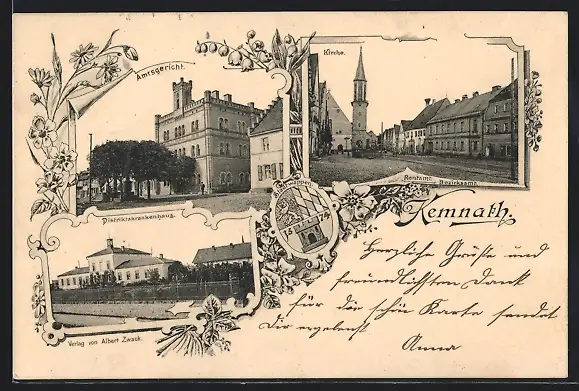 Amtsgericht.
Kirche.
Rentamt.
Bezirksamt.
Distriktskrankenhaus.
Stadtwappen
15 74
Kemnath.
Herzliche Grüße und
freundlichsten Dank
für die schöne Karte sendet
Dir ergebenst
Anna
Verlag von Albert Zwack.